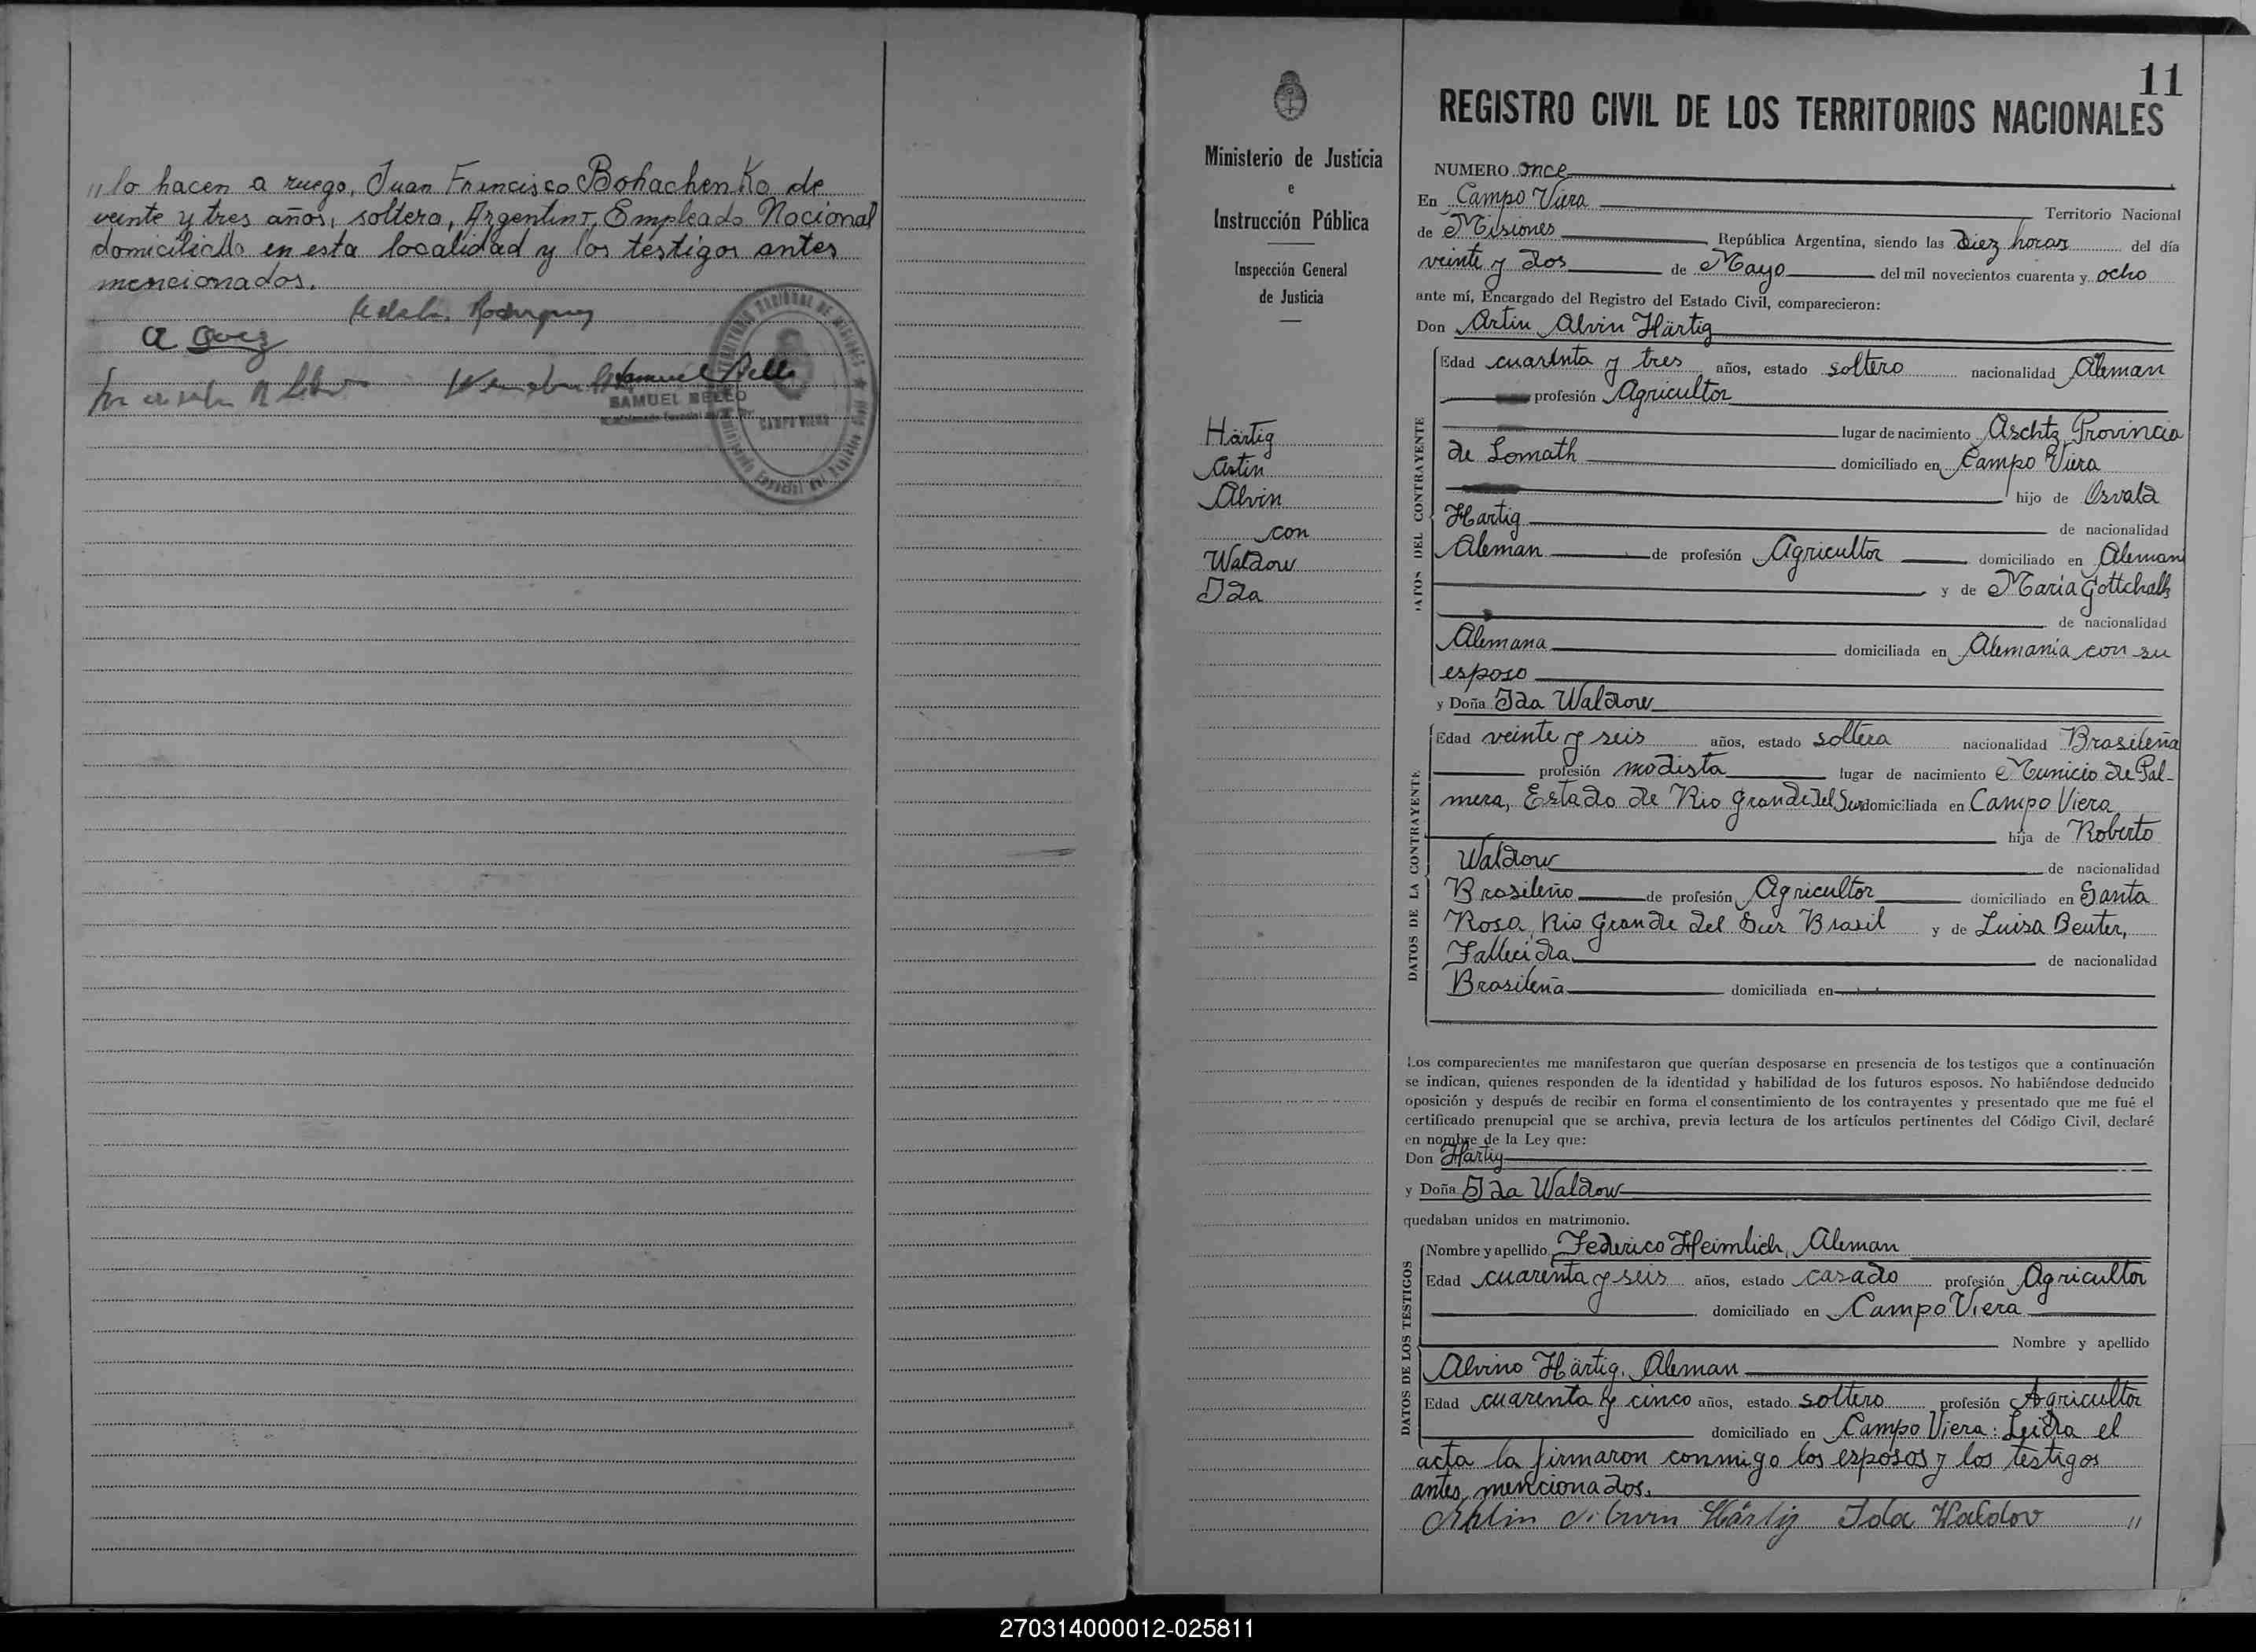 „ lo hacen a ruego, Juan Francisco Bohachenko de
veinte y tres años, soltero, Argentino, Empleado Nacional
domiciliado en esta localidad y los testigos antes
mencionados.
Rodriguez
Samuel Bello
SAMUEL BELLO
CAMPO VIERA
Ministerio de Justicia
e
Instrucción Pública
Inspección General
de Justicia
Härtig
Artin
Alvin
con
Waldow
Ida
11
REGISTRO CIVIL DE LOS TERRITORIOS NACIONALES
NUMERO once
En Campo Viera Territorio Nacional
de Misiones República Argentina, siendo las diez horas del día
veinte y dos de Mayo del mil novecientos cuarenta y ocho
ante mí, Encargado del Registro del Estado Civil, comparecieron:
Don Artin Alvin Härtig
DATOS DEL CONTRAYENTE
Edad cuarenta y tres años, estado soltero nacionalidad Aleman
profesión Agricultor
lugar de nacimiento Aschtz, Provincia
de Lomath domiciliado en Campo Viera
hijo de Osvald
Hartig de nacionalidad
Aleman de profesión Agricultor domiciliado en Aleman
y de Maria Gottchalk
de nacionalidad
Alemana domiciliada en Alemania con su
esposo
y Doña Ida Waldow
DATOS DE LA CONTRAYENTE
Edad veinte y seis años, estado soltera nacionalidad Brasileña
profesión modista lugar de nacimiento Municio de Pal-
mera, Estado de Rio Grande del Sur domiciliada en Campo Viera
hija de Roberto
Waldow de nacionalidad
Brasileño de profesión Agricultor domiciliado en Santa
Rosa, Rio Grande del Sur Brasil y de Luisa Beuter,
Fallecida de nacionalidad
Brasileña domiciliada en
Los comparecientes me manifestaron que querían desposarse en presencia de los testigos que a continuación
se indican, quienes responden de la identidad y habilidad de los futuros esposos. No habiéndose deducido
oposición y después de recibir en forma el consentimiento de los contrayentes y presentado que me fué el
certificado prenupcial que se archiva, previa lectura de los artículos pertinentes del Código Civil, declaré
en nombre de la Ley que:
Don Härtig
y Doña Ida Waldow
quedaban unidos en matrimonio.
DATOS DE LOS TESTIGOS
Nombre y apellido Federico Heimlich, Aleman
Edad cuarenta y seis años, estado casado profesión Agricultor
domiciliado en Campo Viera
Nombre y apellido
Alvino Härtig, Aleman
Edad cuarenta y cinco años, estado soltero profesión Agricultor
domiciliado en Campo Viera: Leida el
acta la firmaron conmigo los esposos y los testigos
antes mencionados.
Härtig Ida Waldov „
270314000012-025811